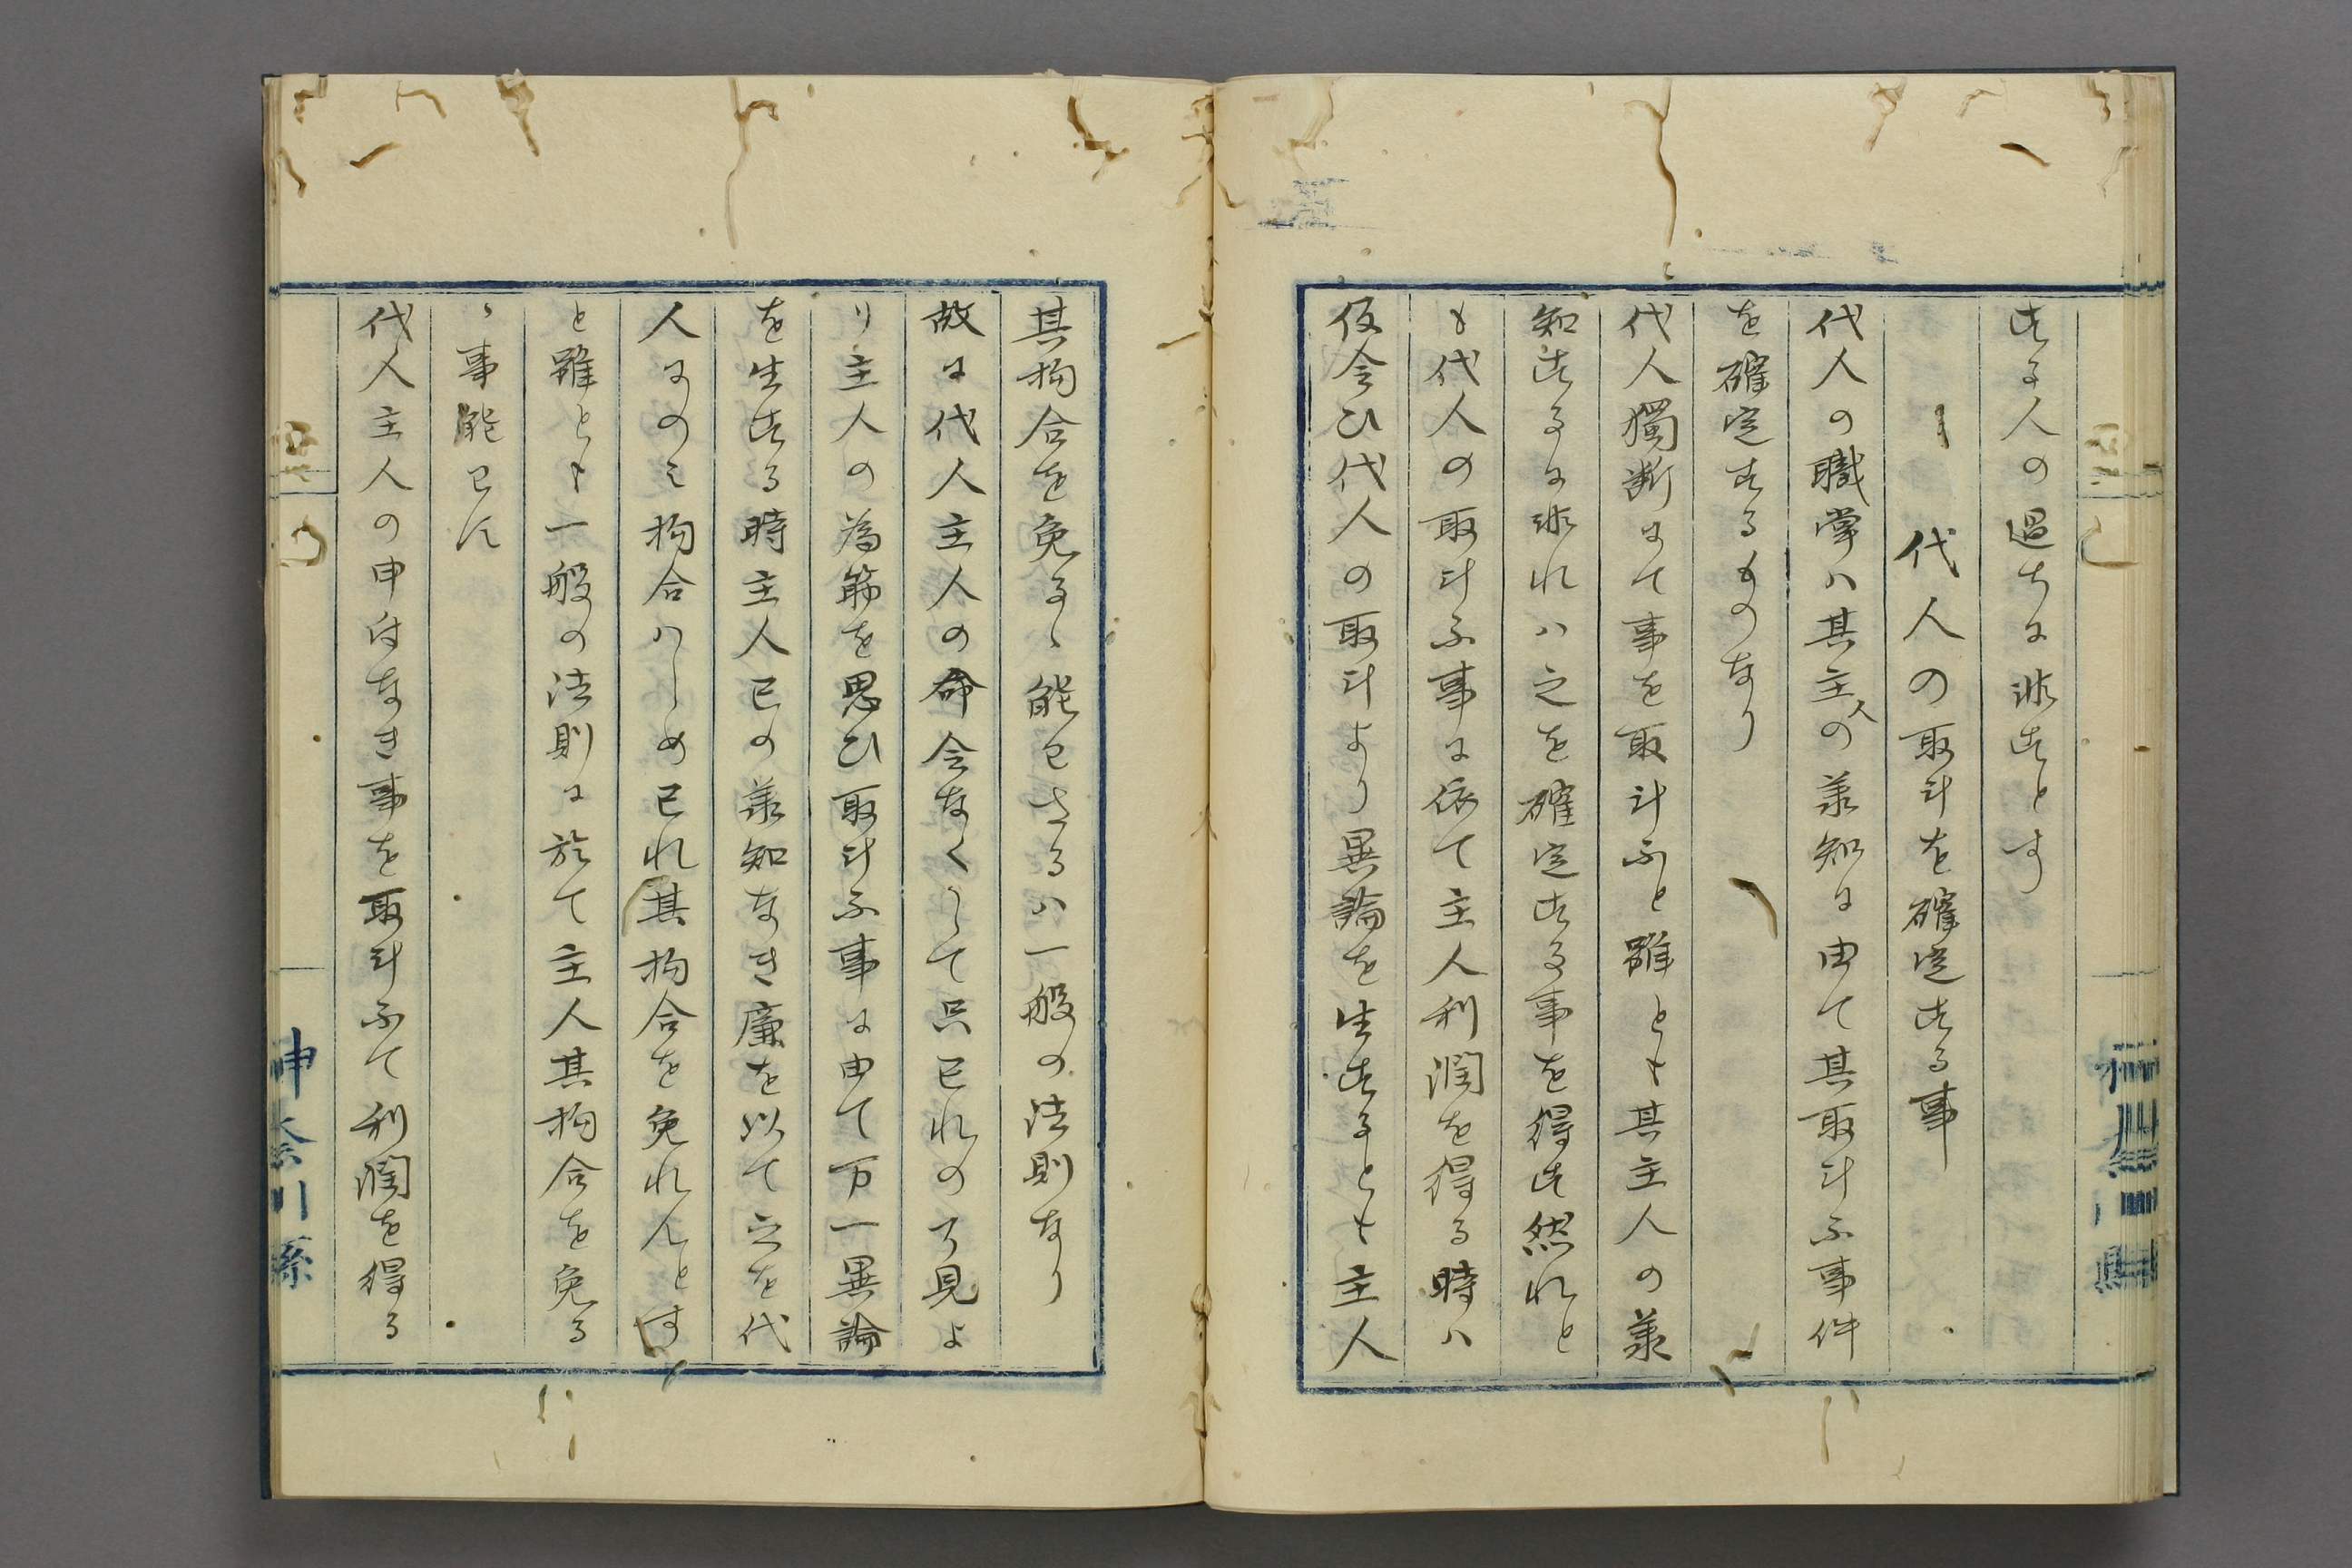 せる人の過ちに非すとす
一 代人の取計を確定する事
代人の職掌ハ其主人の羕知に由て其取計ふ事件
を確定するものなり
代人獨断にて事を取計ふと雖とも其主人の羕
知するに非れハ之を確定する事を得す然れと
も代人の取計ふ事に依て主人利潤を得る時ハ
仮令ひ代人の取計より異論を生するとも主人
其拘合を免るゝ能ハさるハ一般の法則なり
故に代人主人の命令なくして只已れの了見よ
り主人の為筋を思ひ取計ふ事に由て万一異論
を生する時主人已の羕知なき廉を以て之を代
人にのミ拘合ハしめ已れ其拘合を免れんとす
と雖とも一般の法則に於て主人其拘合を免る
ゝ事能ハす
代人主人の申付なき事を取計ふて利潤を得る
神奈川縣